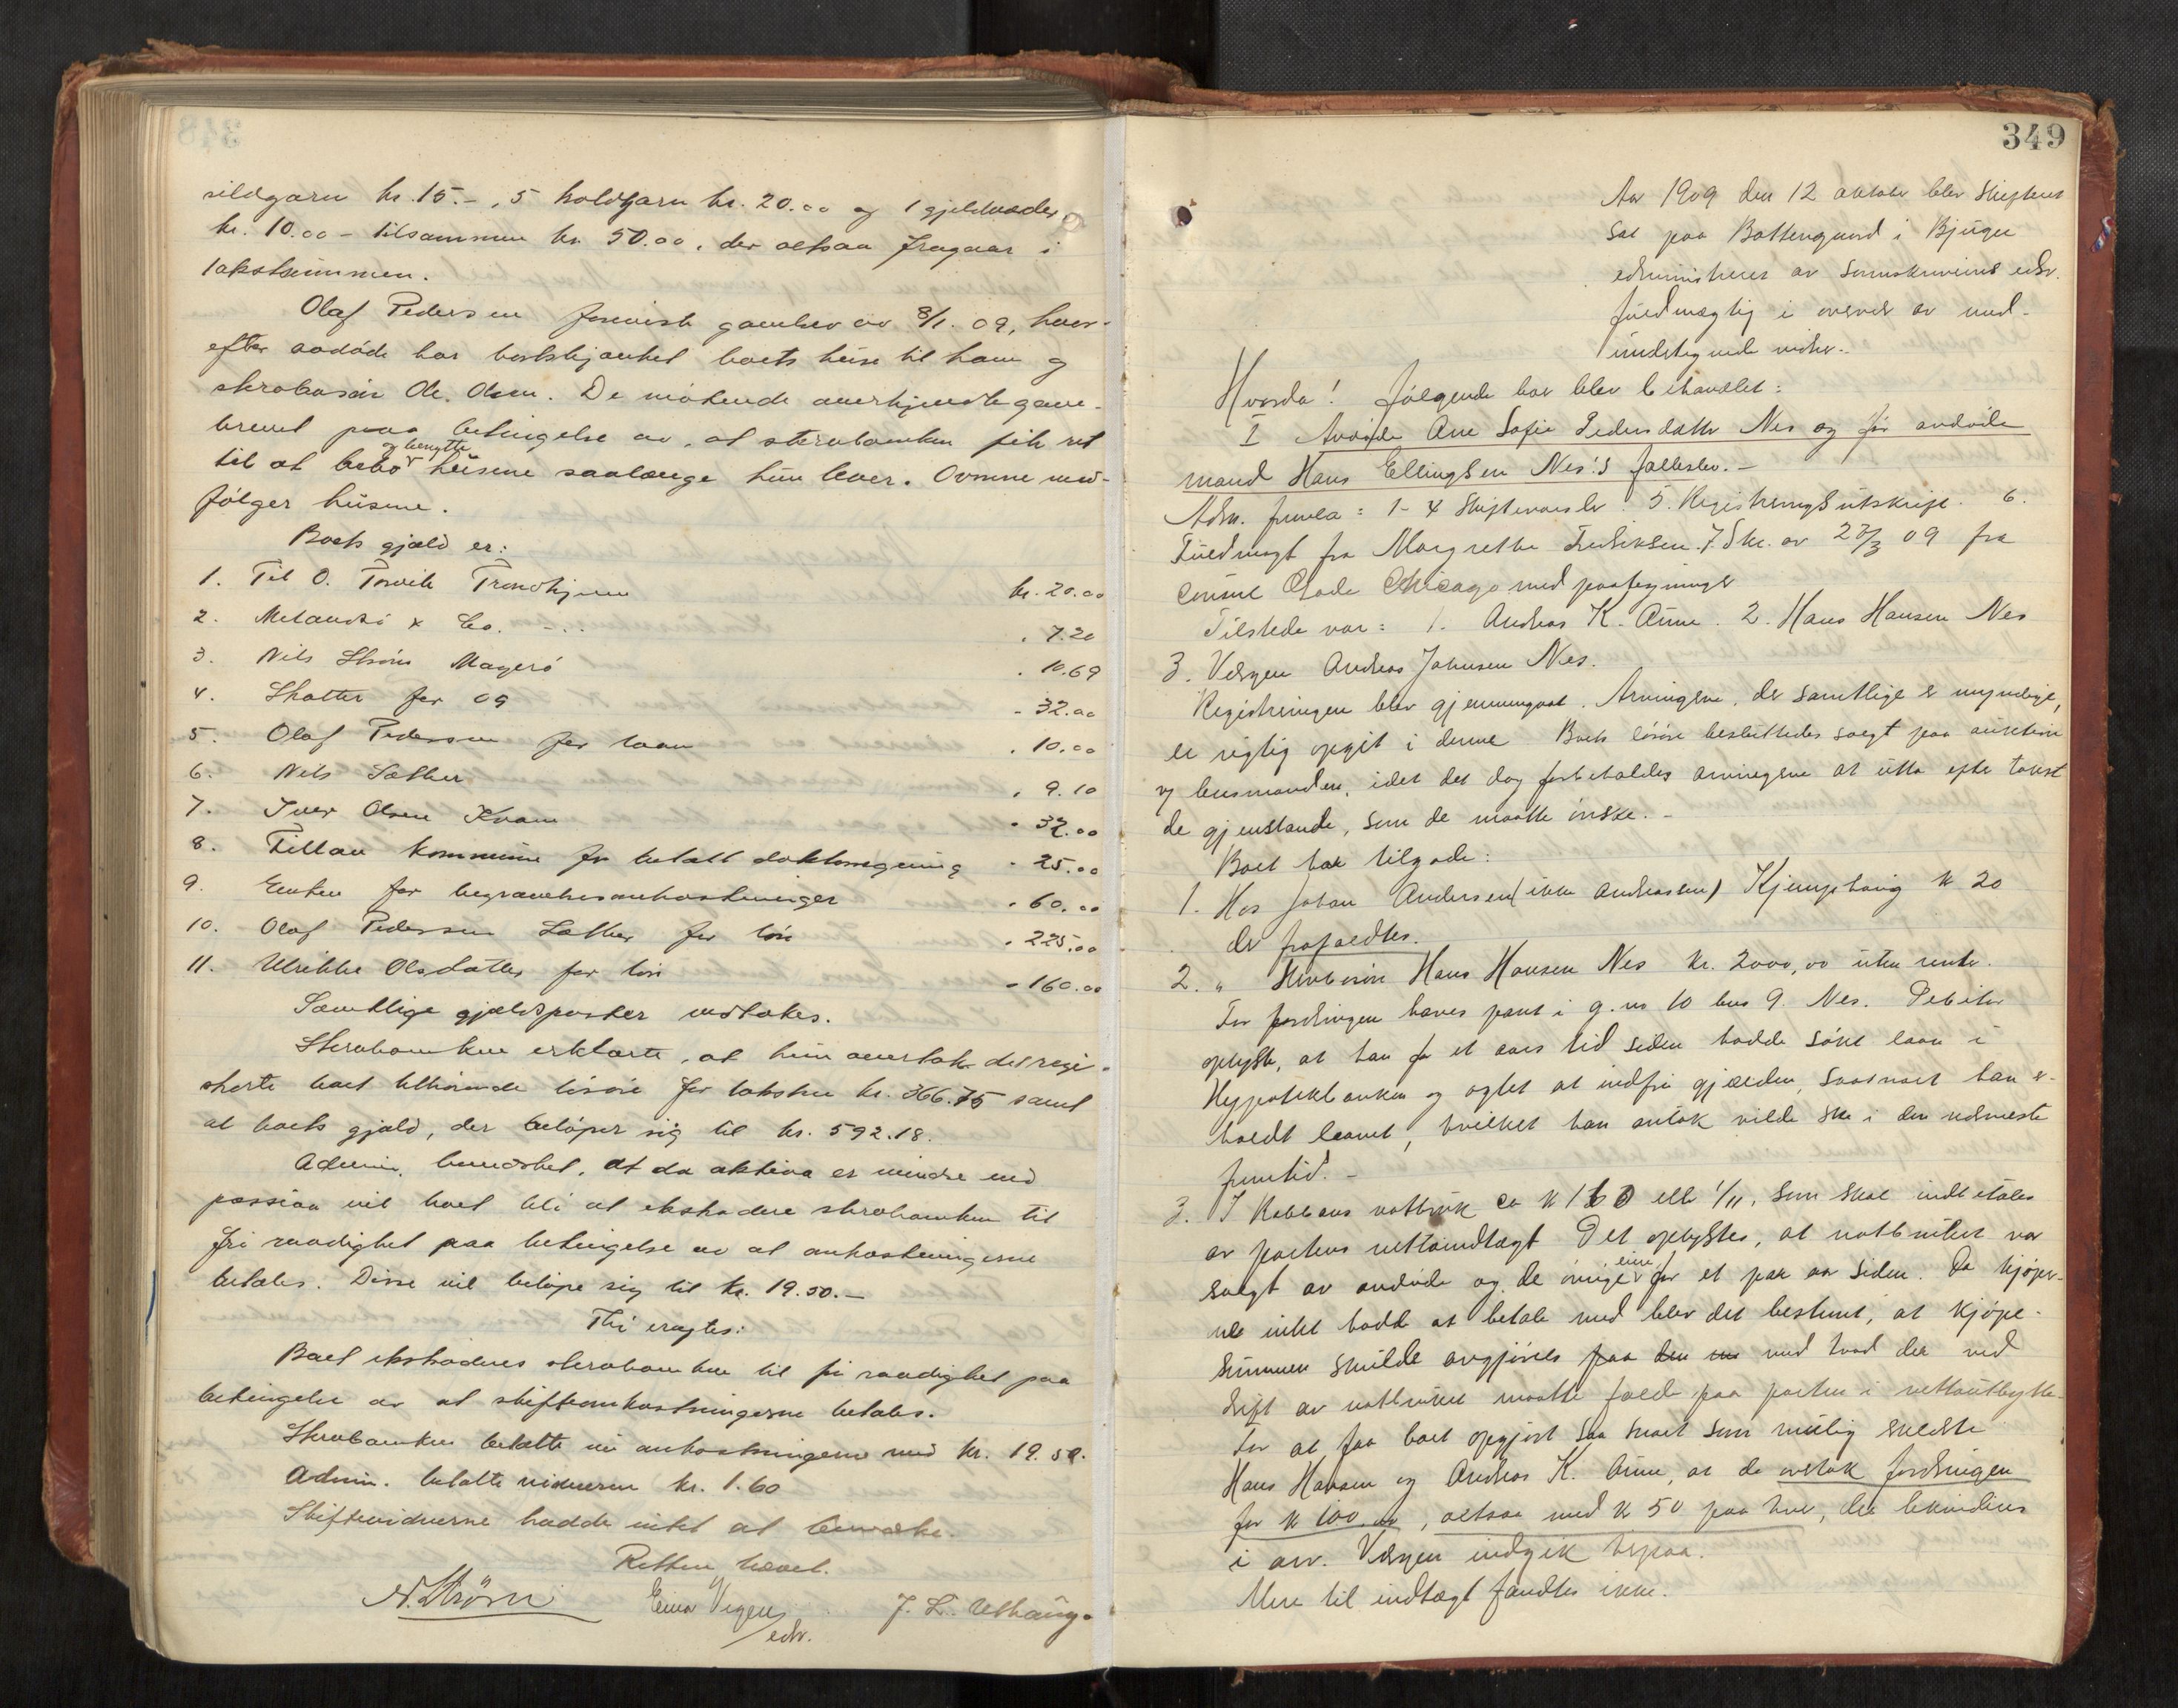 sildgarn kr. 15.-, 5 holdgarn kr. 20.00 og 1 gjeldvader
kr. 10.00 - tilsammen kr. 50.00, der altsaa fragaar i
takstsummen.
Olaf Pedersen foreviste gavebrev av 8/1. 09, hvor-
efter avdøde har bortskjænket boets huse til ham og
sterbosøn Ole Olsen. De møtende anerkjendte gave-
brevet paa betingelse av, at sterboenken fik ret
og benytte
til at bebo husene saalænge hun lever. Ovnene med-
følger husene.
Boets gjæld er:
1. Til O. Torvik Trondhjem kr. 20.00
2. Melandsø & Co. -..- 7.20
3. Nils Strøm Magerø . 10.69
4. Skatter for 09 - 32.00
5. Olaf Pedersen for laan . 10.00
6. Nils Sæther . 9.10
7. Iver Olsen Kvam . 32.00
8. Fillan kommune for betalt doktorregning . 25.00
9. Enken for begravelsesomkostninger . 60.00
10. Olaf Pedersen Sæther for løn . 225.00
11. Ulrikke Olsdatter for løn - 160.00
Samtlige gjældsposter vedtokes.
Sterboenken erklærte, at hun overtok det regi-
sterte boet tilhørende løsøre for taksten kr. 366.75 samt
at boets gjæld, der beløper sig til kr. 592.18.
Admin. bemerket, at da aktiva er mindre end
passiva vil boet bli at ekstradere sterboenken til
fri raadighet paa betingelse av at omkostningerne
betales. Disse vil beløpe sig til kr. 19.50.-
Thi eragtes:
Boet ekstraderes sterboenken til fri raadighet paa
betingelse av at skifteomkostningerne betales.
Sterboenken betalte nu omkostningerne med kr. 19.50.
Admin. betalte vidnerne kr. 1.60
Skiftevidnerne hadde intet at bemerke.
Retten hævet.
N. Strøm Einar Vigen J. L. Ulhaug.
edsv.
349
Aar 1909 den 12 oktober blev skifteret
sat paa Bottengaard i Bjugn
administreret av sorenskriverens edsv.
fuldmægtig i overvær av med-
undertegnede vidner.-
Hvorda! følgende bo blev behandlet:
I Avdøde Ane Sofie Pedersdatter Nes og før avdøde
mand Hans Ellingsen Nes's fællesbo.-
Adm. fremla: 1-4 Skiftevarsler. 5. Registreringsutskrift. 6.
Fuldmagt fra Margrethe Fredriksen. 7. Skr. av 27/3 09 fra
consul Gade Chicago med paategninger
Tilstede var: 1. Andreas K. Aune. 2. Hans Hansen Nes
3. Vergen Andreas Johnsen Nes.
Registreringen blev gjennemgaat. Arvingerne, der samtlige er myndige,
er rigtig opgit i denne Boets løsøre besluttedes solgt paa auktion
v/ lensmanden, idet det dog forbeholdes arvingerne at utta efter takst
de gjenstande, som de maatte ønske.-
Boet har tilgode:
1. Hos Johan Andersen (ikke Andreassen) Kjemphaug kr 20
der frafaldtes.
2. " Sterbosøn Hans Hansen Nes kr. 2000,00 uten renter.
For fordringen haves pant i g.nr 10 bnr 9. Nes. Debitor
oplyste, at han for et aars tid siden hadde søkt laan i
Hypotekbanken og agtet at indfri gjælden, saasnart han er-
holdt laanet, hvilket han antok vilde ske i den nærmeste
fremtid.-
3. I Rabbens notbruk ca kr 160 eller 1/11, som skal indbetales
av partens nettoindtægt Det oplystes, at notbruket var
eiere
solgt av avdøde og de øvrige for et par aar siden. Da kjøper-
ne intet hadde at betale med blev det bestemt, at kjøpe-
summen skulde avgjøres paa den med hvad der ved
drift av notbruket maatte falde paa parten i nettoutbytte.
For at faa boet opgjort saa snart som mulig meldte
Hans Hansen og Andreas K. Aune, at de overtok fordringen
for kr 100.00, altsaa med kr 50 paa hver, der likvideres
i arv. Vergen indgik herpaa.
Mere til indtægt fandtes ikke.